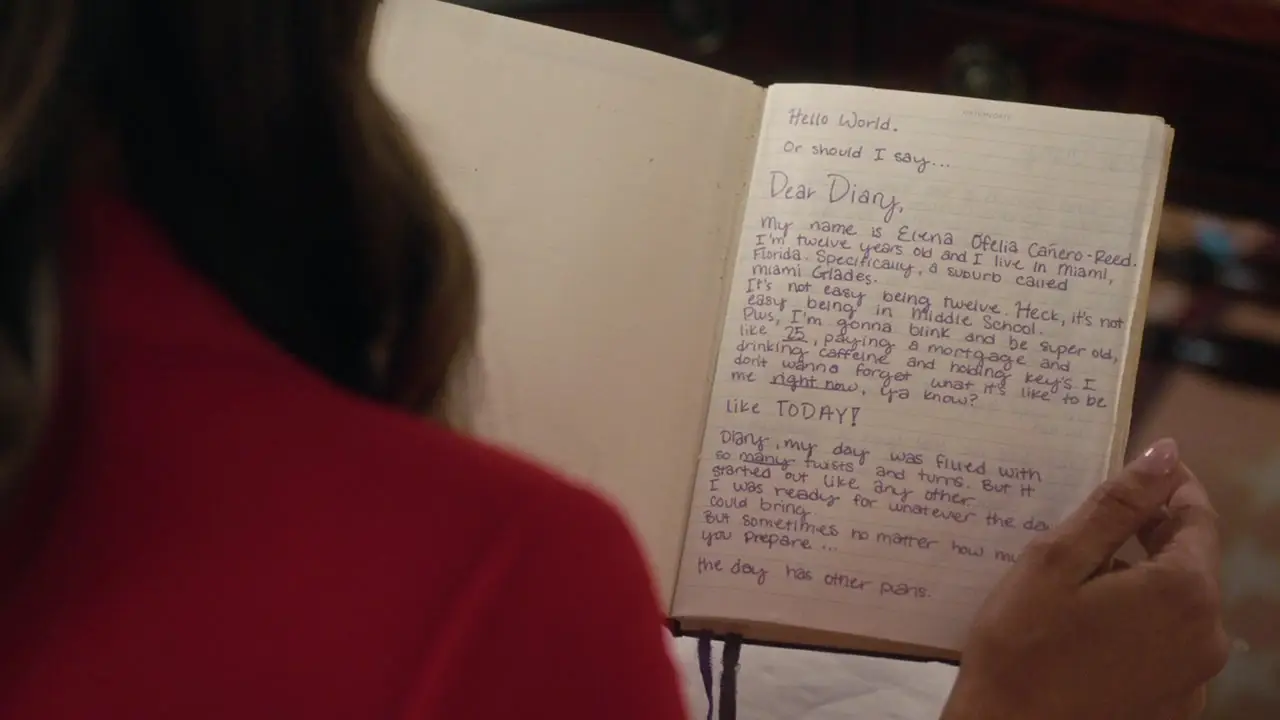 Hello World.
Or should I say...
Dear Diary,
My name is Elena Ofelia Cañero-Reed.
I'm twelve years old and I live in Miami,
Florida. Specifically, a suburb called
Miami Glades.
It's not easy being twelve. Heck, it's not
easy being in Middle School.
Plus, I'm gonna blink and be super old,
like 25, paying a mortgage and
drinking caffeine and holding key's I
don't wanna forget what it's like to be
me right now, ya know?
like TODAY!
Diary, my day was filled with
so many twists and turns. But it
started out like any other.
I was ready for whatever the day
could bring
But sometimes no matter how
you prepare...
the day has other plans.